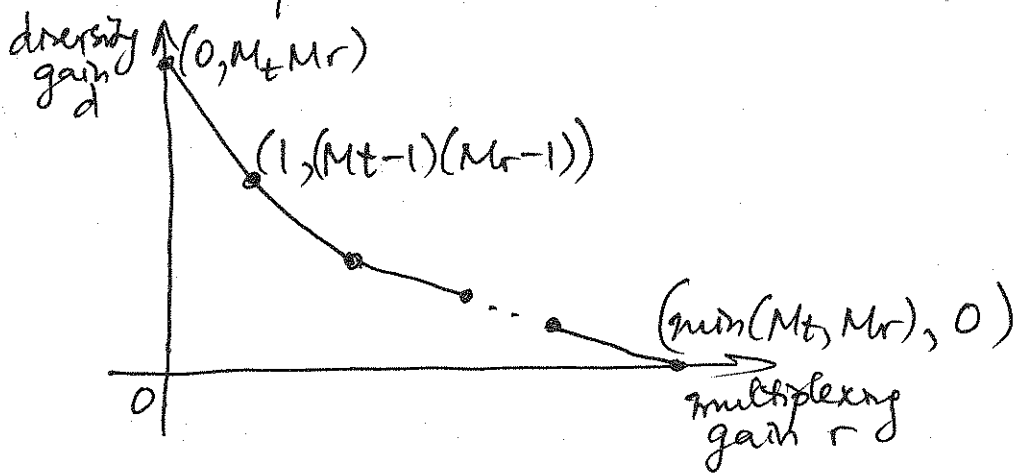 diversity
gain
d
(0, Mt Mr)
(1, (Mt-1)(Mr-1))
(min(Mt, Mr), 0)
0
multiplexing
gain r